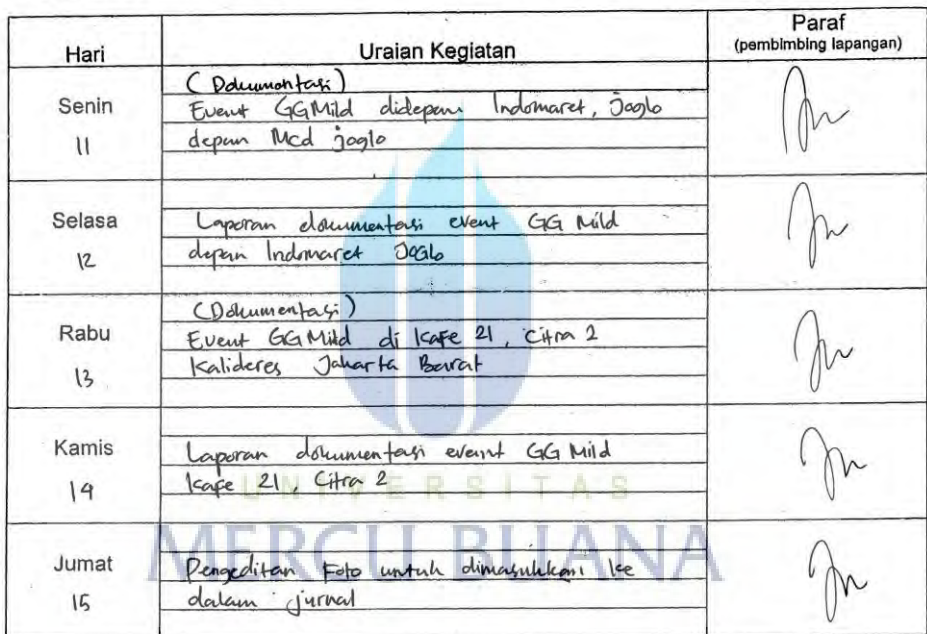 Hari
Uraian Kegiatan
Paraf
(pembimbing lapangan)
Senin
11
(Dokumentasi)
Event GG Mild didepan Indomaret, Joglo
depan Mcd joglo
Selasa
12
Laporan dokumentasi event GG Mild
depan Indomaret Joglo
Rabu
13
(Dokumentasi)
Event GG Mild di Kafe 21, Citra 2
Kalideres Jakarta Barat
Kamis
14
Laporan dokumentasi event GG Mild
Kafe 21, Citra 2
Jumat
15
Pengeditan Foto untuk dimasukkan ke
dalam jurnal
UNIVERSITAS
MERCU BUANA